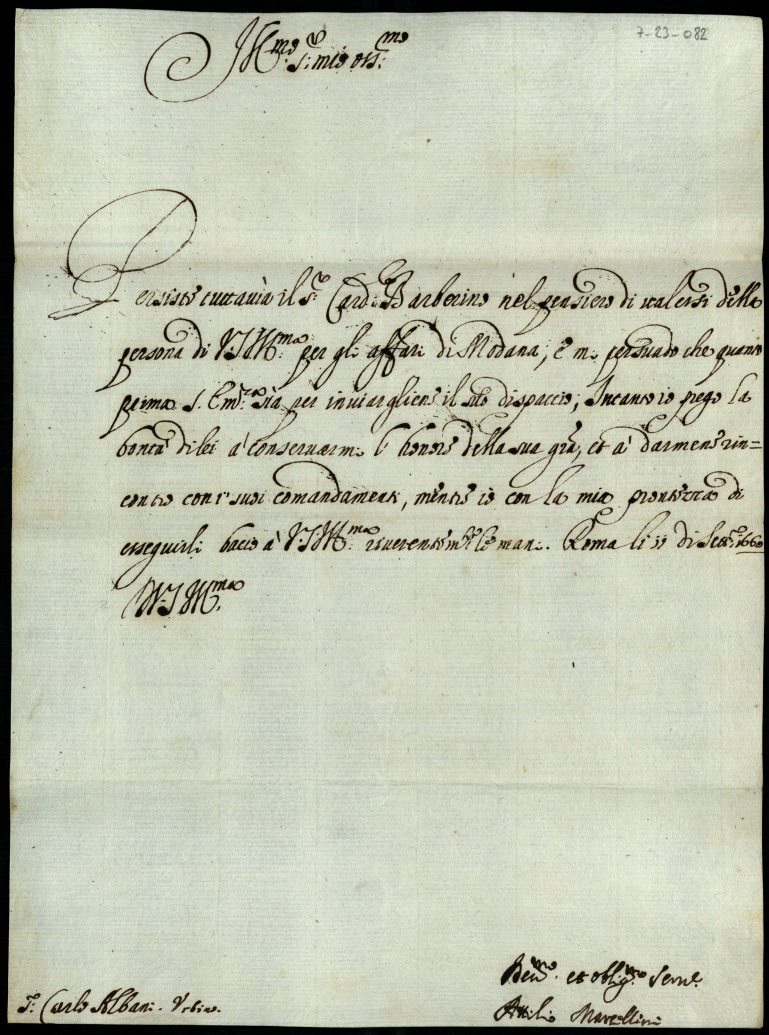 7-23-082
Ill.mo S.r mio oss.mo
Persiste tuttavia il S.r Card. Barberino nel pensiero di valersi della
persona di V.S. Ill.ma per gli affari di Modana, e mi persuado che quanto
prima S. Em.za sia per inviargliene il suo dispaccio; Intanto io prego la
bontà di lei à conservarmi l'honore della sua gra, et à darmene rin=
contro con i suoi comandamenti, mentre io con la mia prontezza di
esseguirli bacio à V.S. Ill.ma riverentem.te le mani. Roma li 11 di Sett.e 1660
Di V.S. Ill.ma
Dev.mo et oblig.mo Serv.e
Attilio Marcellini
S.r Carlo Albani. Urbino.